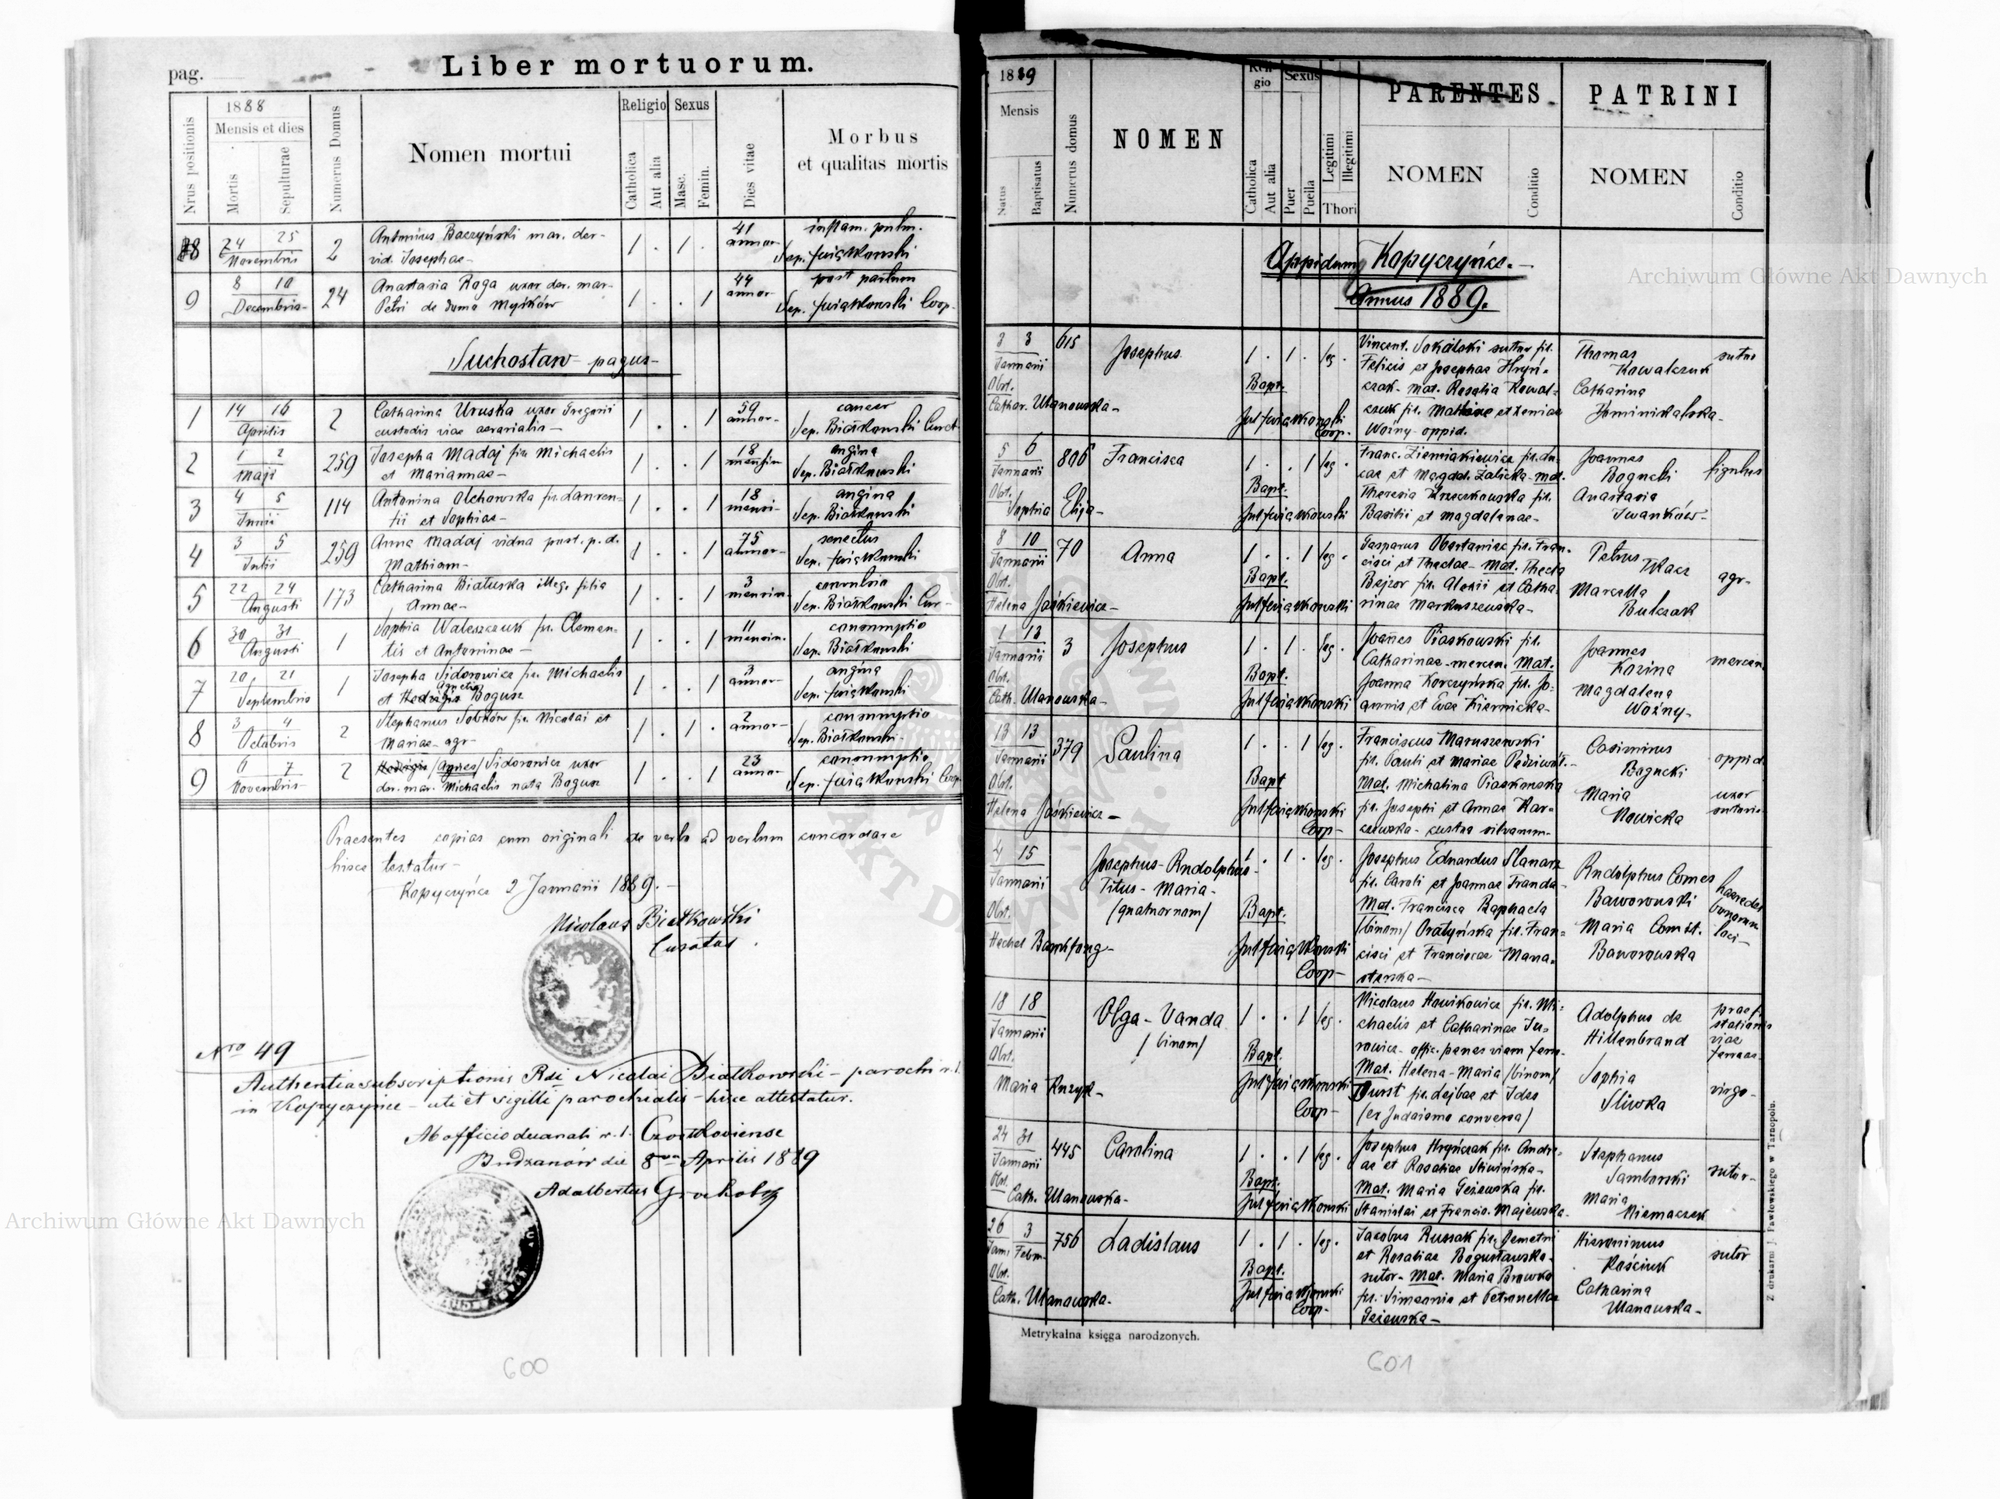 pag.
Liber mortuorum.
Nrus positionis
1888
Mensis et dies
Mortis
Sepulturae
Numerus Domus
Nomen mortui
Religio
Catholica
Aut alia
Sexus
Masc.
Femin.
Dies vitae
Morbus
et qualitas mortis
8 24 25 Novembris 2
Antonius Baczyński mar. der-
vid. Josephae-
1 . 1 . 41 annor-
inflam. pulm.
Sep. Świątkowski
9 8 10 Decembris- 24
Anastasia Roga uxor der. mar-
Petri de domo Myśków
1 . . 1 44 annor-
post partum
Sep. Świątkowski Coop-
Suchostaw- pagus-
1 14 16 Aprilis 2
Catharina Uruska uxor Gregorii
custodis viae aerarialis-
1 . . 1 59 annor-
cancer
Sep. Białkowski Curat
2 1 2 Maji 259
Josepha Madaj fia Michaelis
et Mariannae-
1 . . 1 18 mensiu
angina
Sep. Białkowski
3 4 5 Junii 114
Antonina Olchowska fil. Lauren-
tii et Sophiae-
1 . . 1 18 mensi-
angina
Sep. Białkowski
4 3 5 Julii 259
Anna Madaj vidua post. p. d.
Mathiam-
1 . . 1 75 annor-
senectus
Sep. Świątkowski
5 22 24 Augusti 173
Catharina Białuska illeg. filia
Annae-
1 . . 1 3 mensiu-
convulsio
Sep. Białkowski Cur-
6 30 31 Augusti 1
Sophia Waleszczuk fil. Clemen-
tis et Antoninae-
1 . . 1 11 mensiu-
consumptio
Sep. Białkowski
7 20 21 Septembris 1
Josepha Sidorowicz fia Michaelis
et Agnetis Bogusz
1 . . 1 3 annor-
angina
Sep. Świątkowski
8 3 4 Octobris 2
Stephanus Sobków fil. Nicolai et
Mariae- agr-
1 . 1 . 2 annor-
consumptio
Sep. Białkowski-
9 6 7 Novembris- 2
Hedvigis /Agnes/ Sidorowicz uxor
der. mar. Michaelis nata Bogusz
1 . . 1 23 annor-
consumptio
Sep. Świątkowski Coop
Praesentes copias cum originali de verbo ad verbum concordare
hisce testatur-
Kopyczyńce 2 Januarii 1889.-
Nicolaus Białkowski
Curatus.
Nro 49
Authentia subscriptionis Rdi Nicolai Białkowski- parochi r. l.
in Kopyczyńce- uti et sigilli parochialis- hisce attestatur.
Ab officio decanali r. l. Czortkoviense
Budzanów die 8va Aprilis 1889
Adalbertus
600
1889
Mensis
Natus
Baptisatus
Numerus domus
NOMEN
Religio
Catholica
Aut alia
Sexus
Puer
Puella
Legitimi
Illegitimi
Thori
PARENTES
NOMEN
Conditio
PATRINI
NOMEN
Conditio
Oppidum Kopyczyńce.-
Annus 1889.
3 3 Januarii 615
Josephus.
1 . 1 . leg.
Obst. Cathar. Ulanowska-
Bapt.
Jul Świątkowski Coop-
Vincent. Sokalski sutor fil.
Felicis et Josephae Hryń-
czak- Mat. Rosalia Kowal-
czuk fil. Mathiae et Xeniae
Woźny- oppid.
Thomas
Kowalczuk
Catharina
Dominikalska-
sutor
5 6 Januarii 806
Francisca
1 . . 1 leg.
Obst. Sophia Eliga-
Bapt.
Jul Świątkowski
Franc. Ziemiakiewicz fil. Lu-
cae et Magdal. Zalicka- mat.
Theresia Kruczkowska fil.
Basilii et Magdalenae-
Joannes
Bogucki
Anastasia
Iwanków-
figulus
8 10 Januarii 70
Anna
1 . . 1 leg.
Obst. Helena Jaśkiewicz-
Bapt.
Jul Świątkowski
Gasparus Obertaniec fil. Fran-
cisci et Theclae- Mat. Thecla
Bejzor fil. Alexii et Catha-
rinae Markuszewska-
Petrus
Tkacz
Marcella
Bulczak
agr-
1 13 Januarii 3
Josephus
1 . 1 . leg.
Obst. Cath. Ulanowska-
Bapt.
Jul Świątkowski
Joannes Piaskowski fil.
Catharinae- mercen. Mat.
Joanna Korczyńska fil. Jo-
annis et Evae Kiernicka-
Joannes
Kozina
Magdalena
Woźny-
mercen
13 13 Januarii 379
Paulina
1 . . 1 leg.
Obst. Helena Jaśkiewicz-
Bapt
Jul Świątkowski Coop-
Franciscus Maruszewski
fil. Pauli et Mariae
Mat. Michalina Piaskowska
fil. Josephi et Annae Kar-
czewska- custos silvarum-
Casimirus
Bogucki
Maria
Nowicka
oppid
uxor
sutoris-
4 15 Januarii
Josephus- Rudolphus
Titus- Maria-
/quatuornom/
1 . 1 . leg.
Obst.
Hechel
Bapt.
Jul Świątkowski Coop-
Josephus Eduardus Slanarz
fil. Caroli et Joannae Franda-
Mat. Francisca Raphaela
/binom/ Oratyńska fil. Fran-
cisci et Franciscae Mana-
sterska-
Rudolphus Comes
Baworowski
Maria Comit.
Baworowska
haeredes
bonorum
loci-
18 18 Januarii
Olga- Vanda
/binom/
1 . . 1 leg.
Obst. Maria Kuzyk-
Bapt.
Jul Świątkowski Coop-
Nicolaus Nowikowicz fil. Mi-
chaelis et Catharinae Ju-
rowicz- offic. penes viam ferr-
Mat. Helena- Maria /binom/
Durst fil. Lejbae et Ides
/ex Judaismo conversa/
Adolphus de
Hillenbrand
Sophia
Sliwka
praef.
stationis
viae
ferreae-
virgo-
24 31 Januarii 445
Carolina
1 . . 1 leg.
Obst. Cath. Ulanowska-
Bapt.
Jul Świątkowski
Josephus Hryńczak fil. Andre-
ae et Rosaliae Sliwińska-
Mat. Maria Jeżewska fil.
Stanislai et Francis. Majewska-
Stephanus
Samborski
Maria
Niemaczek
sutor-
26 3 Janu. Febru- 756
Ladislaus
1 . 1 . leg.
Obst. Cath. Ulanowska-
Bapt.
Jul Świątkowski Coop-
Jacobus Russak fil. Demetri
et Rosaliae Bogusławska-
sutor- Mat. Maria Browko
fil. Simeonis et Petronellae
Jeżewska-
Hieronimus
Kościuk
Catharina
Ulanowska-
sutor
Metrykalna księga narodzonych.
Z drukarni J. Pawłowskiego w Tarnopolu.
601
Archiwum Główne Akt Dawnych
Archiwum Główne Akt Dawnych